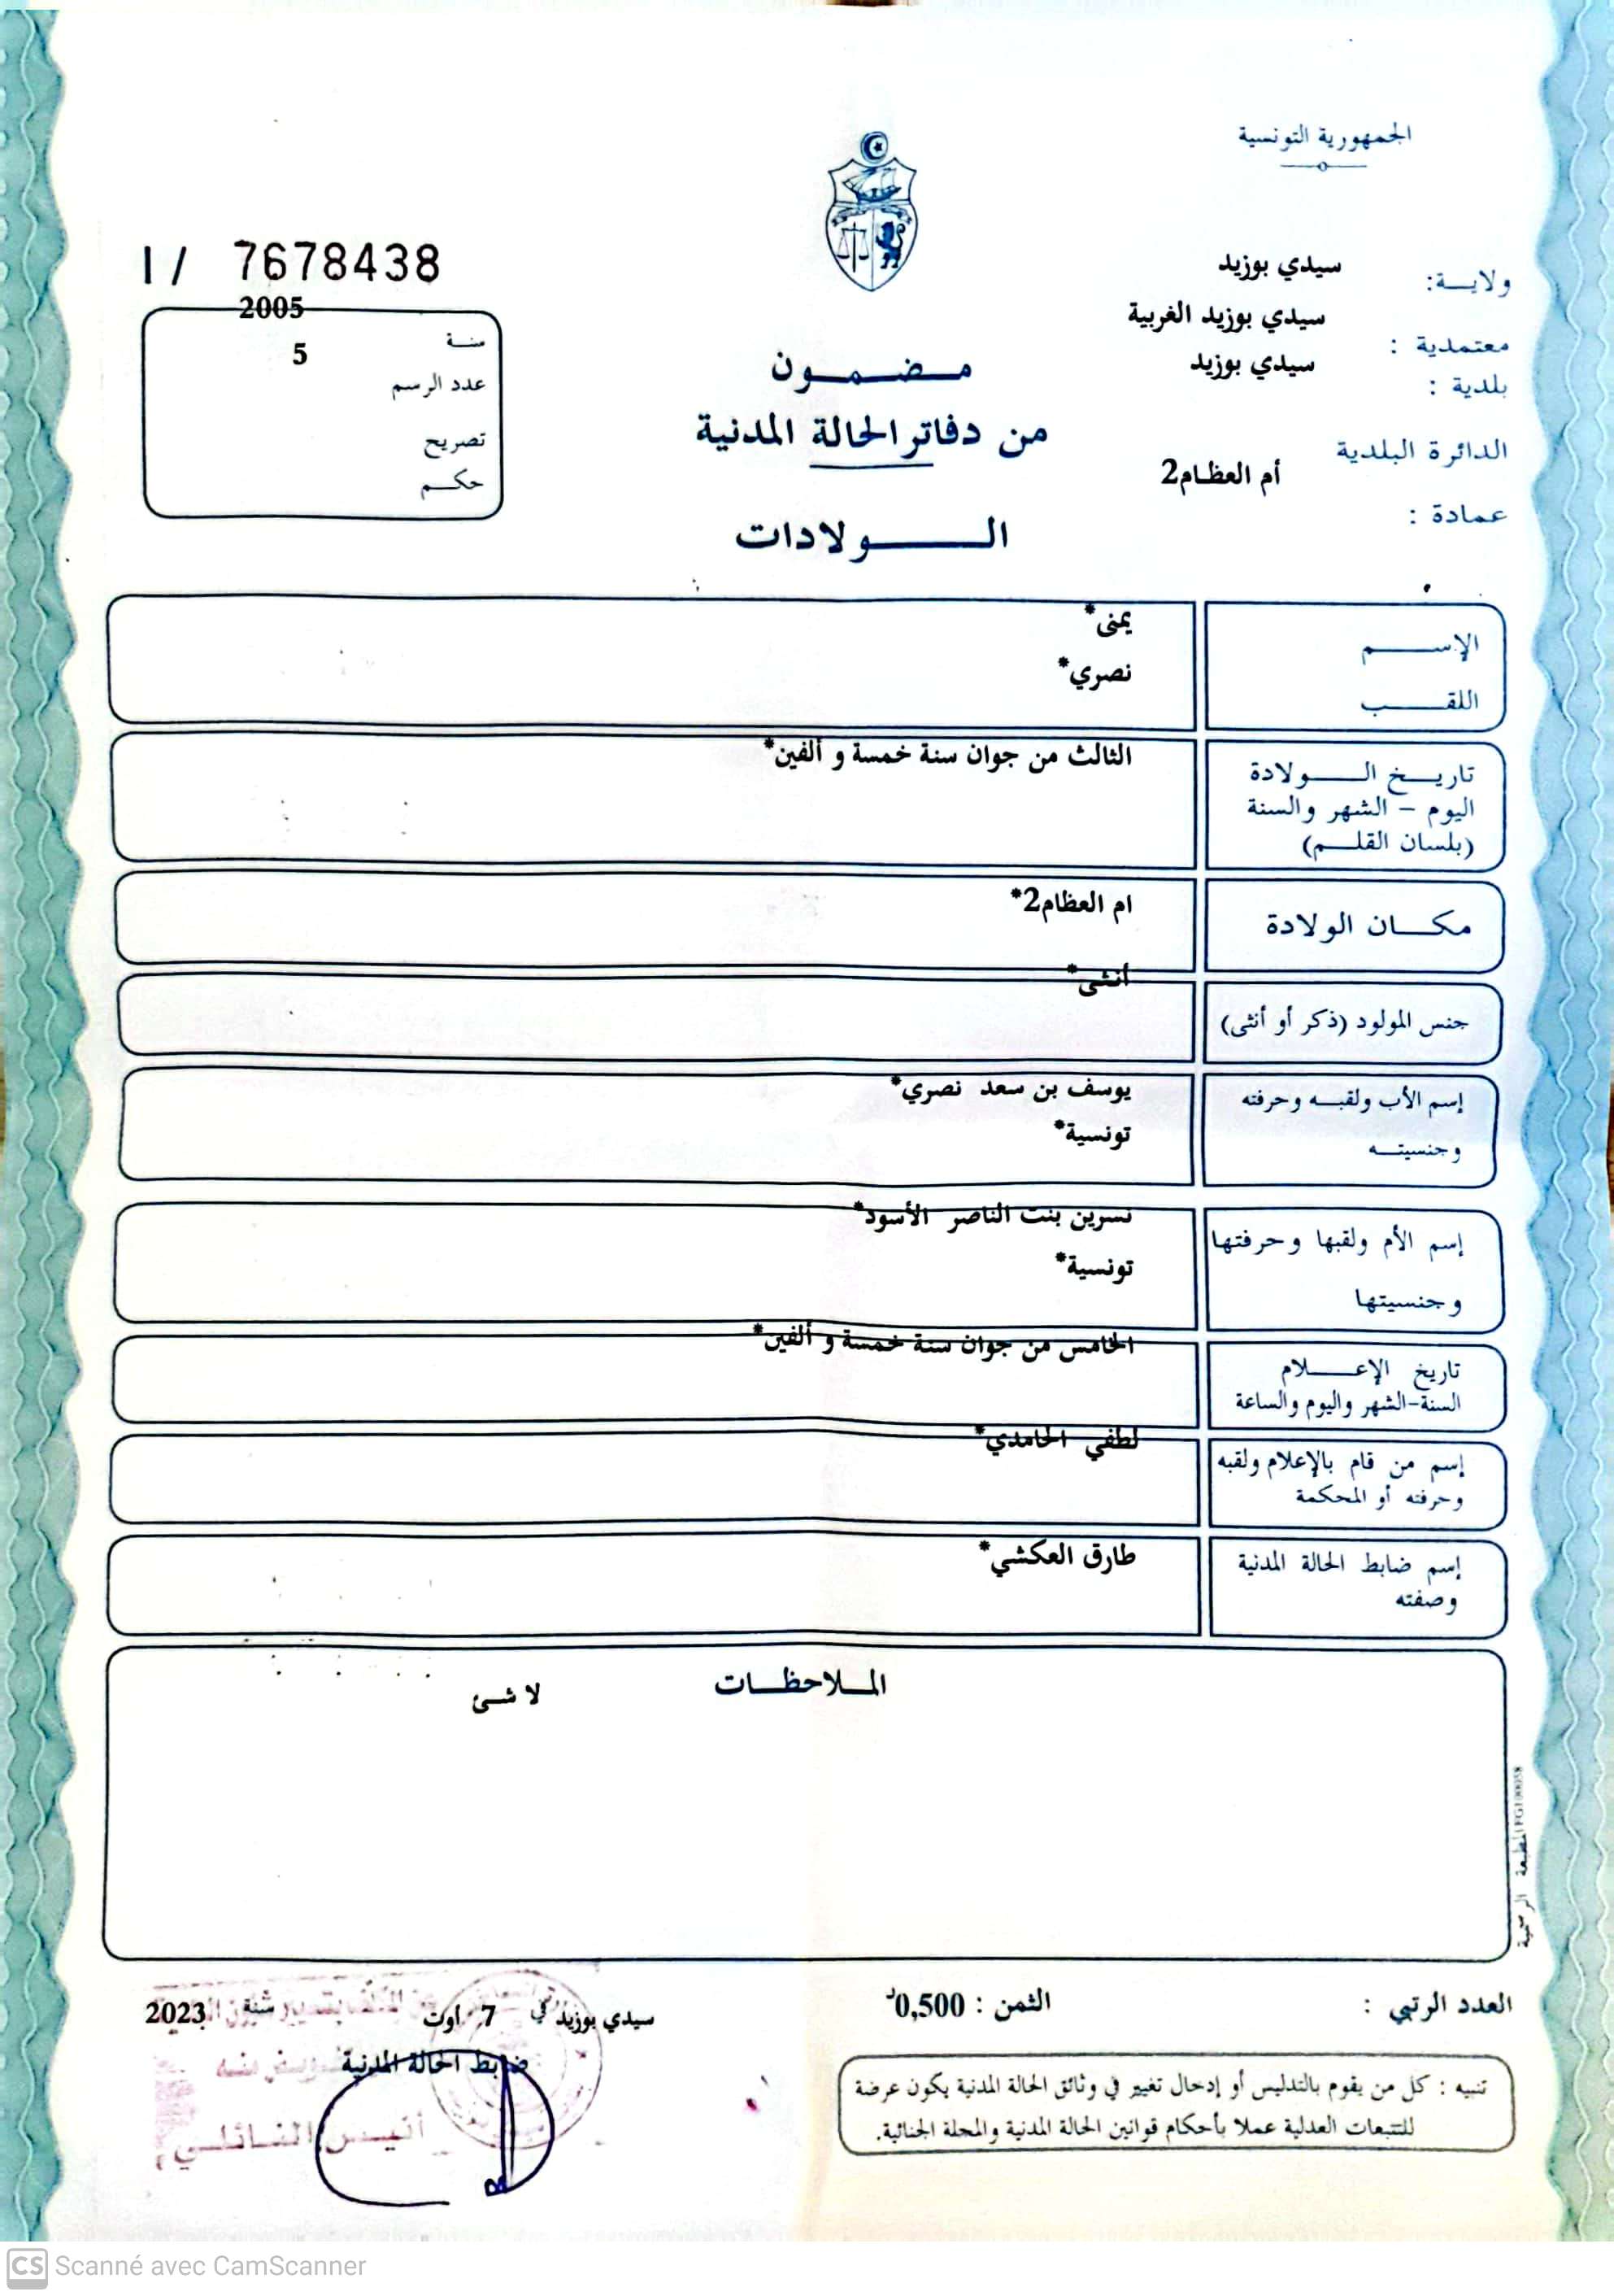 الجمهورية التونسية
ولاية: سيدي بوزيد
معتمدية : سيدي بوزيد الغربية
بلدية : سيدي بوزيد
الدائرة البلدية
عمادة : أم العظام2
1/ 7678438
2005
سنة
5
عدد الرسم
تصريح
حكم
مضمون
من دفاتر الحالة المدنية
الولادات
الإسم
يمنى*
اللقب
نصري*
تاريخ الولادة
اليوم - الشهر والسنة
(بلسان القلم)
الثالث من جوان سنة خمسة و ألفين*
مكان الولادة
ام العظام2*
جنس المولود (ذكر أو أنثى)
أنثى*
إسم الأب ولقبه وحرفته
وجنسيته
يوسف بن سعد نصري*
تونسية*
إسم الأم ولقبها وحرفتها
وجنسيتها
نسرين بنت الناصر الأسود*
تونسية*
تاريخ الإعلام
السنة-الشهر واليوم والساعة
الخامس من جوان سنة خمسة و ألفين*
إسم من قام بالإعلام ولقبه
وحرفته أو المحكمة
لطفي الحامدي*
إسم ضابط الحالة المدنية
وصفته
طارق العكشي*
الملاحظات
لا شئ
المطبعة الرسمية FG100058
العدد الرتبي :
الثمن : 0,500د
سيدي بوزيد في 7 أوت سنة 2023
ضابط الحالة المدنية
أنيس النائلي
تنبيه : كل من يقوم بالتدليس أو إدخال تغيير في وثائق الحالة المدنية يكون عرضة
للتتبعات العدلية عملا بأحكام قوانين الحالة المدنية والمجلة الجنائية.
CS Scanné avec CamScanner